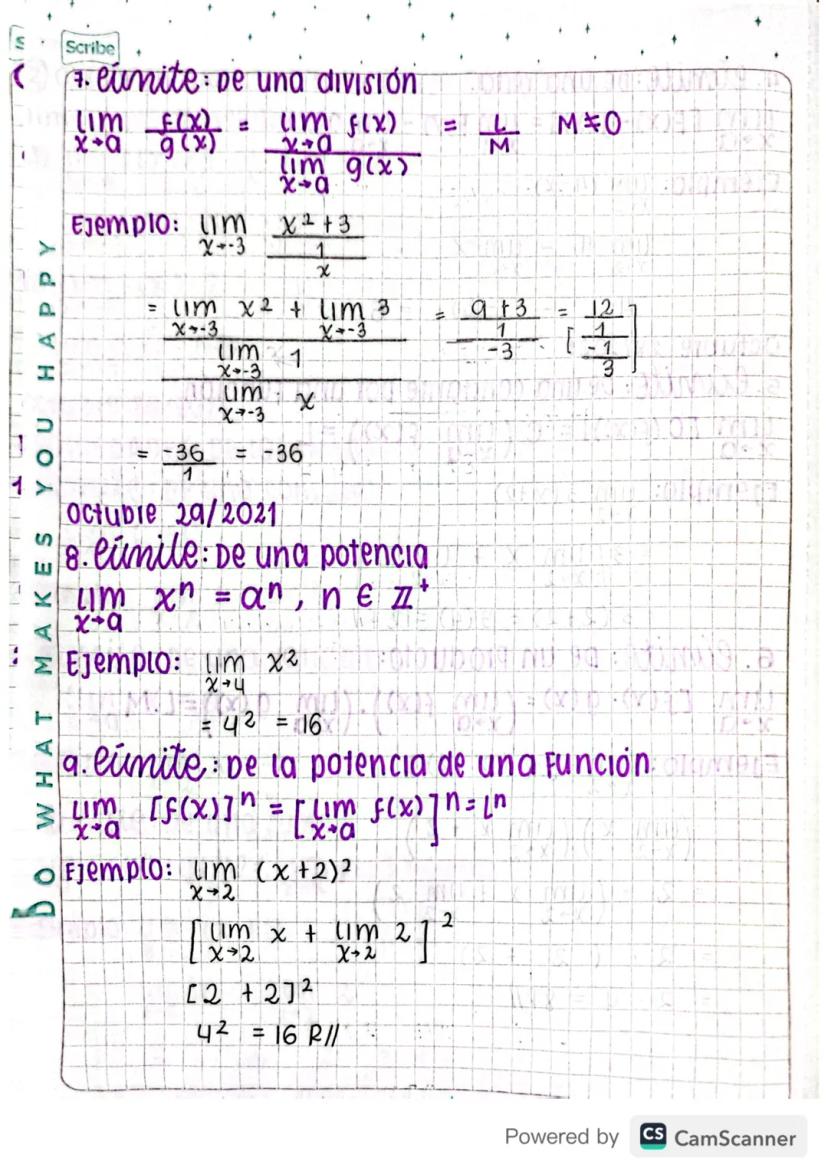 Scribe
7. Límite: De una división
lim x→a f(x)/g(x) = lim x→a f(x) / lim x→a g(x) = L/M M≠0
Ejemplo: lim x→-3 (x² + 3)/(1/x)
= (lim x→-3 x² + lim x→-3 3)/(lim x→-3 1/lim x→-3 x) = (9+3)/(1/-3) = [(12/1)/(-1/3)]
= -36/1 = -36
Octubre 29/2021
8. Límite: De una potencia
lim x→a xⁿ = aⁿ, n ∈ ℤ⁺
Ejemplo: lim x→4 x²
= 4² = 16
9. Límite: De la potencia de una Función
lim x→a [f(x)]ⁿ = [lim x→a f(x)]ⁿ = Lⁿ
Ejemplo: lim x→2 (x+2)²
[lim x→2 x + lim x→2 2]²
[2 + 2]²
4² = 16 R//
DO WHAT MAKES YOU HAPPY
Powered by CS CamScanner